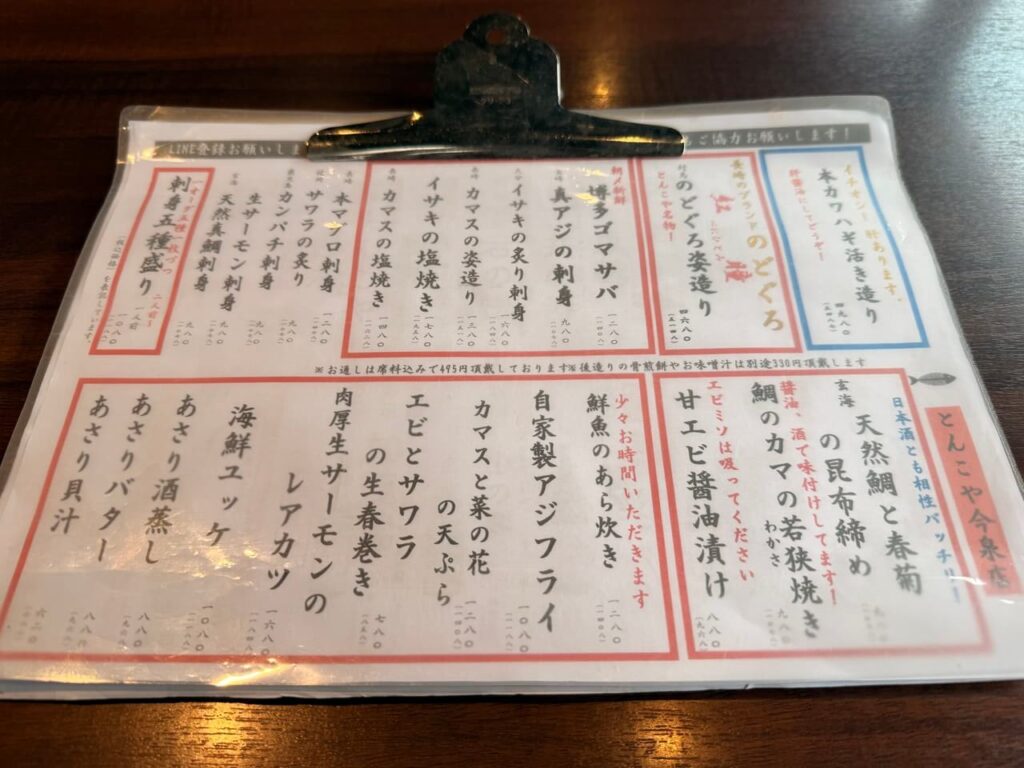 LINE登録お願いしま
ご協力お願いします!
イチオシ!肝あります。
本カワハギ活き造り
肝醤油にしてどうぞ!
四九八〇
長崎のブランドのどぐろ
紅瞳
のどぐろ姿造り
とんこや名物!
四六八〇
朝〆新鮮
博多ゴマサバ
一二八〇
真アジの刺身
九八〇
イサキの炙り刺身
一六八〇
長崎
カマスの姿造り
一三八〇
イサキの塩焼き
一七八〇
長崎
カマスの塩焼き
長崎
本マグロ刺身
一二八〇
サワラの炙り
九八〇
鹿児島
カンパチ刺身
九八〇
生サーモン刺身
九八〇
玄海
天然真鯛刺身
九八〇
刺身五種盛り
二人前~
一人前
一〇八〇
(税込価格)を表記しています。
※お通しは席料込みで495円頂戴しております※後造りの骨煎餅やお味噌汁は別途330円頂戴します
とんこや今泉店
日本酒とも相性バッチリ!
玄海
天然鯛と春菊
の昆布締め
醤油、酒で味付けしてます!
鯛のカマの若狭焼き
わかさ
九八〇
エビミソは吸ってください
甘エビ醤油漬け
八八〇
(九六八)
少々お時間いただきます
鮮魚のあら炊き
一二八〇
(一四〇八)
自家製アジフライ
一〇八〇
(一一八八)
カマスと菜の花
の天ぷら
一二八〇
(一四〇八)
エビとサワラ
の生春巻き
七八〇
(八五八)
肉厚生サーモンの
レアカツ
一六八〇
海鮮ユッケ
一〇八〇
(一一八八)
あさり酒蒸し
八八〇
(九六八)
あさりバター
八八〇
(九六八)
あさり貝汁
六二〇